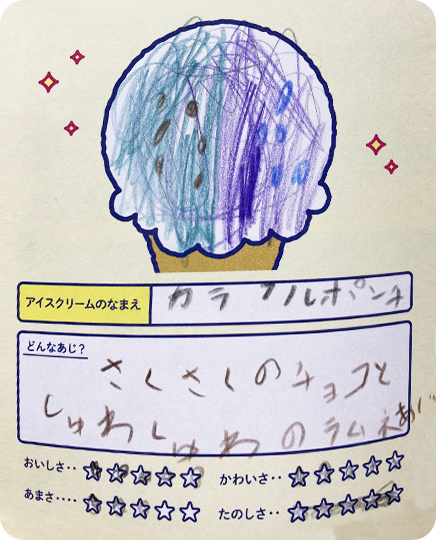 アイスクリームのなまえ カラフルポンチ
どんなあじ?
さくさくのチョコと
しゅわしゅわのラムネあじ
おいしさ‥☆☆☆☆☆ かわいさ‥☆☆☆☆☆
あまさ‥‥☆☆☆☆☆ たのしさ‥☆☆☆☆☆